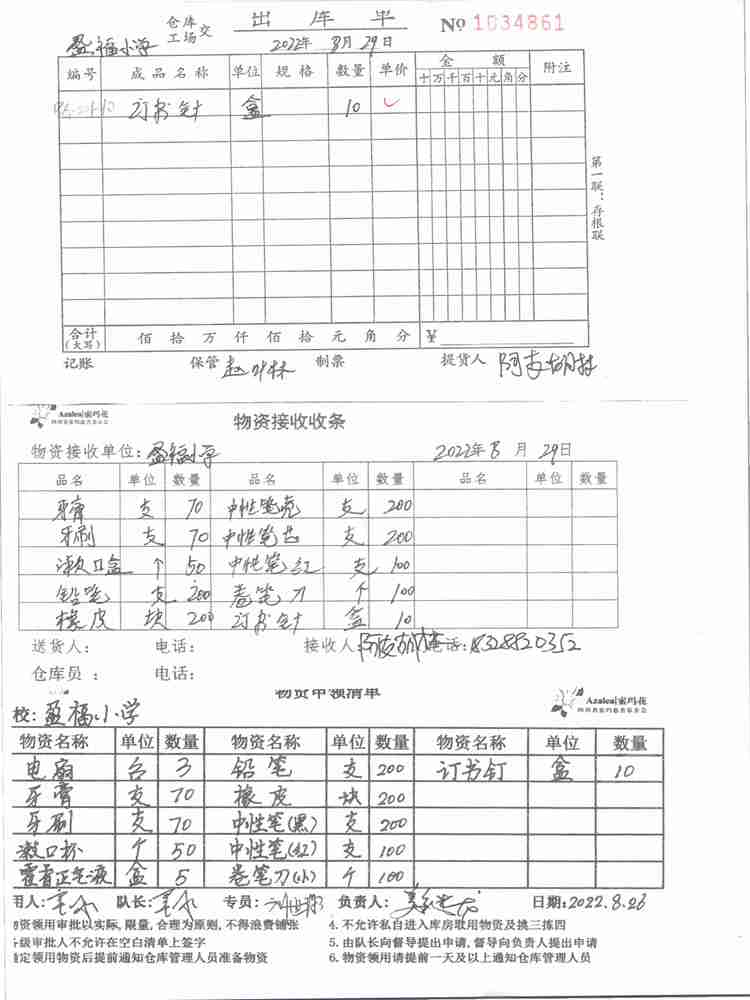 仓库
工场 交
出库单
№ 1034861
盈福小学
2022年 8月 29日
编号 成品名称 单位 规格 数量 单价 金额 附注
十万千百十元角分
订书针 盒 10
第一联:存根联
合计(大写) 佰 拾 万 仟 佰 拾 元 角 分 ¥
记账 保管 制票 提货人
Azalea|索玛花
物资接收收条
物资接收单位: 盈福小学 2022年 8 月 29日
品名 单位 数量 品名 单位 数量 品名 单位 数量
牙膏 支 70 中性笔壳 支 200
牙刷 支 70 中性笔芯 支 200
漱口盒 个 50 中性笔红 支 100
铅笔 支 200 卷笔刀 个 100
橡皮 块 200 订书针 盒 10
送货人: 电话: 接收人: 电话:
仓库员: 电话:
物资申领清单
Azalea|索玛花
校: 盈福小学
物资名称 单位 数量 物资名称 单位 数量 物资名称 单位 数量
电扇 台 3 铅笔 支 200 订书钉 盒 10
牙膏 支 70 橡皮 块 200
牙刷 支 70 中性笔(黑) 支 200
漱口杯 个 50 中性笔(红) 支 100
藿香正气液 盒 5 卷笔刀(小) 个 100
用人: 队长: 专员: 负责人: 日期: 2022.8.26
资领用审批以实际,限量,合理为原则,不得浪费铺张 4.不允许私自进入库房取用物资及挑三拣四
级审批人不允许在空白清单上签字 5.由队长向督导提出申请,督导向负责人提出申请
定领用物资后提前通知仓库管理人员准备物资 6.物资领用请提前一天及以上通知仓库管理人员